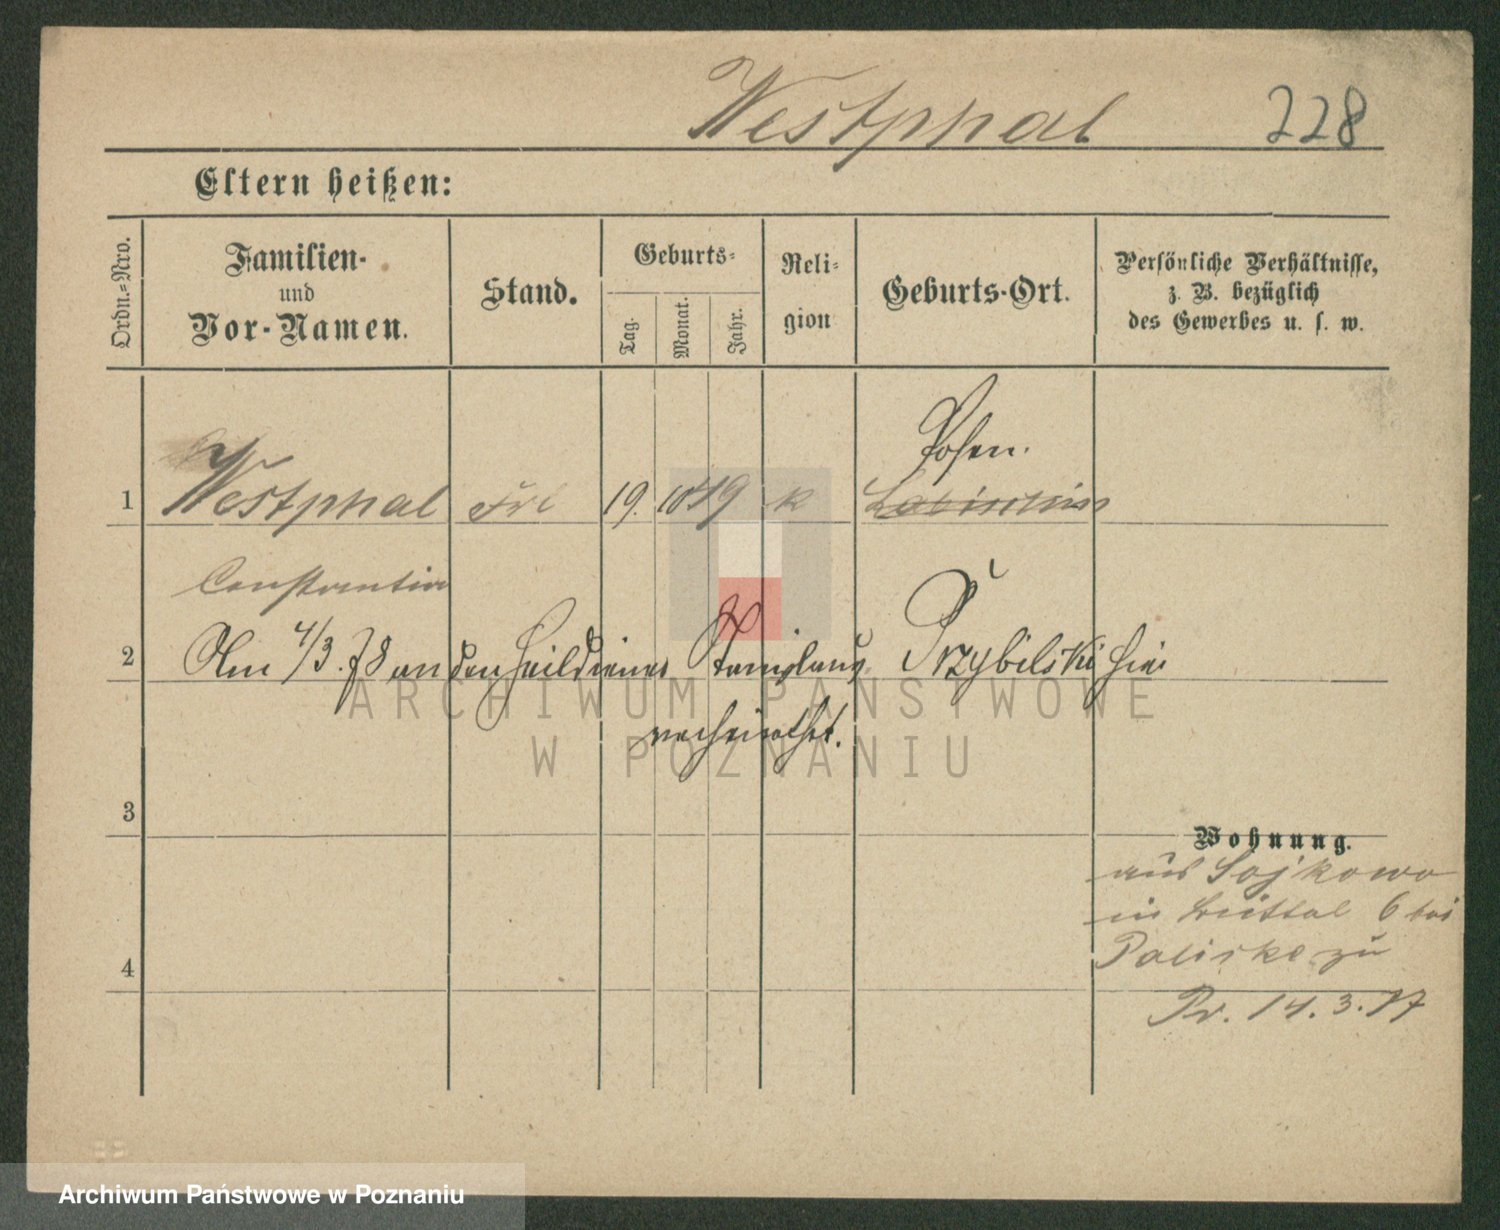 Westphal 228
Eltern heißen:
Ordn.-Nro.
Familien- und Vor-Namen.
Stand.
Geburts-
Tag. Monat. Jahr.
Reli-
gion
Geburts-Ort.
Persönliche Verhältnisse,
z. B. bezüglich
des Gewerbes u. s. w.
Posen.
1 Westphal Frl 19. 10 49 k
Constantia
2 Am 4/3. 78 an den Heildiener Przybilski hier
verheirathet.
ARCHIWUM PAŃSTWOWE
W POZNANIU
3
Wohnung.
aus Sojkowo
in 6 bei
4 zu
Pr. 14. 3. 77
Archiwum Państwowe w Poznaniu